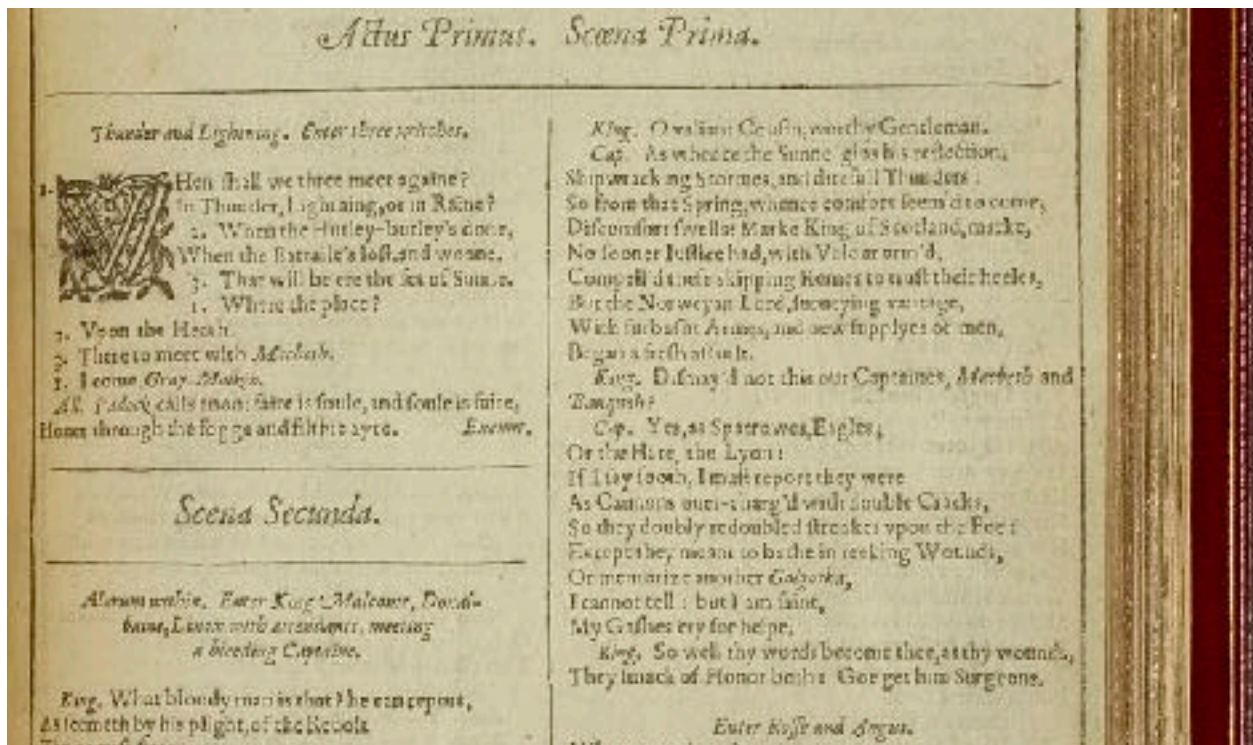 Actus Primus. Scœna Prima.
Thunder and Lightning. Enter three Witches.
1. WHen shall we three meet againe?
In Thunder, Lightning, or in Raine?
2. When the Hurley-burley's done,
When the Battaile's lost, and wonne.
3. That will be ere the set of Sunne.
1. Where the place?
2. Vpon the Heath.
3. There to meet with Macbeth.
1. I come, Gray-Malkin.
All. Padock calls anon: faire is foule, and foule is faire,
Houer through the fogge and filthie ayre. Exeunt.
Scena Secunda.
Alarum within. Enter King Malcome, Donal-
baine, Lenox, with attendants, meeting
a bleeding Captaine.
King. What bloody man is that? he can report,
As seemeth by his plight, of the Reuolt
King. O valiant Cousin, worthy Gentleman.
Cap. As whence the Sunne 'gins his reflection,
Shipwracking Stormes, and direfull Thunders:
So from that Spring, whence comfort seem'd to come,
Discomfort swells: Marke King of Scotland, marke,
No sooner Iustice had, with Valour arm'd,
Compell'd these skipping Kernes to trust their heeles,
But the Norweyan Lord, surueying vantage,
With furbusht Armes, and new supplyes of men,
Began a fresh assault.
King. Dismay'd not this our Captaines, Macbeth and
Banquoh?
Cap. Yes, as Sparrowes, Eagles;
Or the Hare, the Lyon:
If I say sooth, I must report they were
As Cannons ouer-charg'd with double Cracks,
So they doubly redoubled stroakes vpon the Foe:
Except they meant to bathe in reeking Wounds,
Or memorize another Golgotha,
I cannot tell: but I am faint,
My Gashes cry for helpe.
King. So well thy words become thee, as thy wounds,
They smack of Honor both: Goe get him Surgeons.
Enter Rosse and Angus.